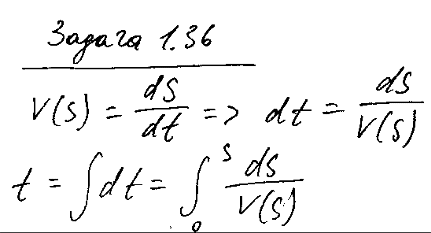 Задача 1.36
V(S) = dS/dt => dt = dS/V(S)
t = ∫dt = ∫₀ˢ dS/V(S)